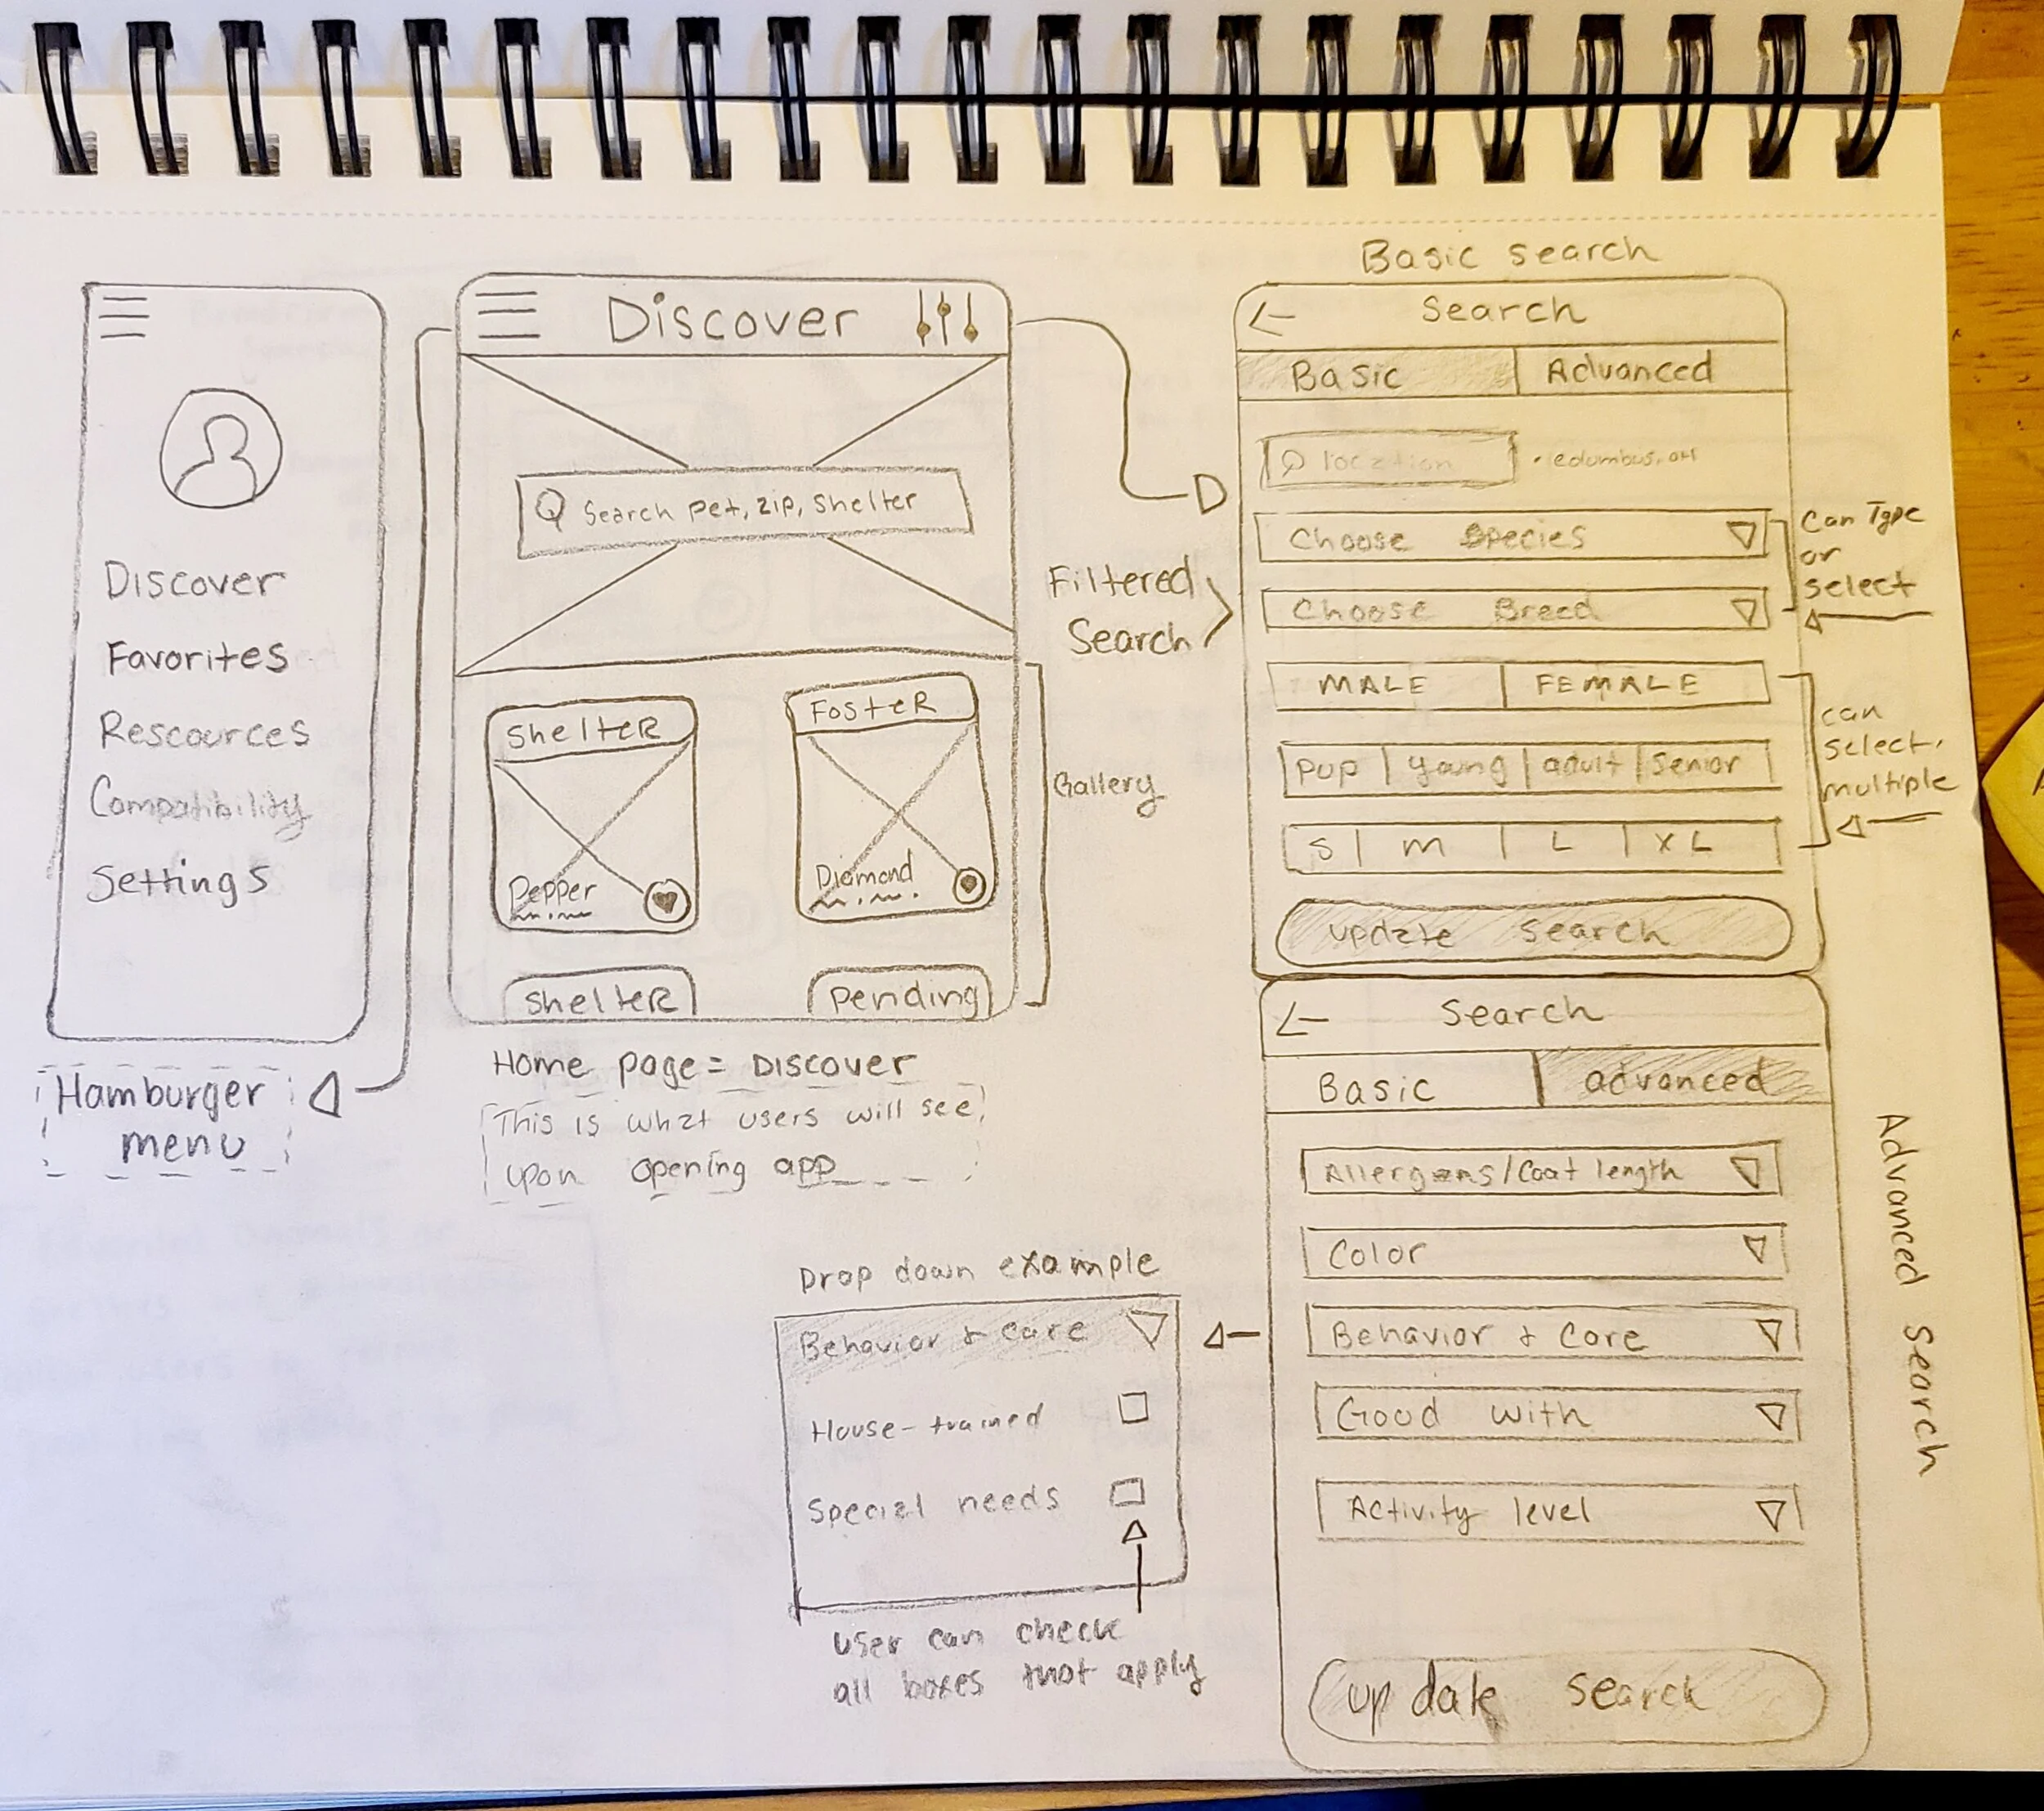 Discover
Favorites
Rescources
Compatibility
Settings
Hamburger
menu
Discover
Search pet, zip, shelter
Shelter
Foster
Pepper
Diamond
Shelter
Pending
Gallery
Home page = Discover
This is what users will see
upon opening app
Filtered
Search
Basic search
Search
Basic
Advanced
location
Columbus, OH
Choose Species
Choose Breed
Can Type
or
select
MALE
FEMALE
Pup
young
adult
Senior
S
M
L
XL
can
select
multiple
update search
Search
Basic
advanced
Allergens/Coat length
Color
Behavior & Care
Good with
Activity level
update search
Advanced Search
Drop down example
Behavior & care
House-trained
Special needs
user can check
all boxes that apply